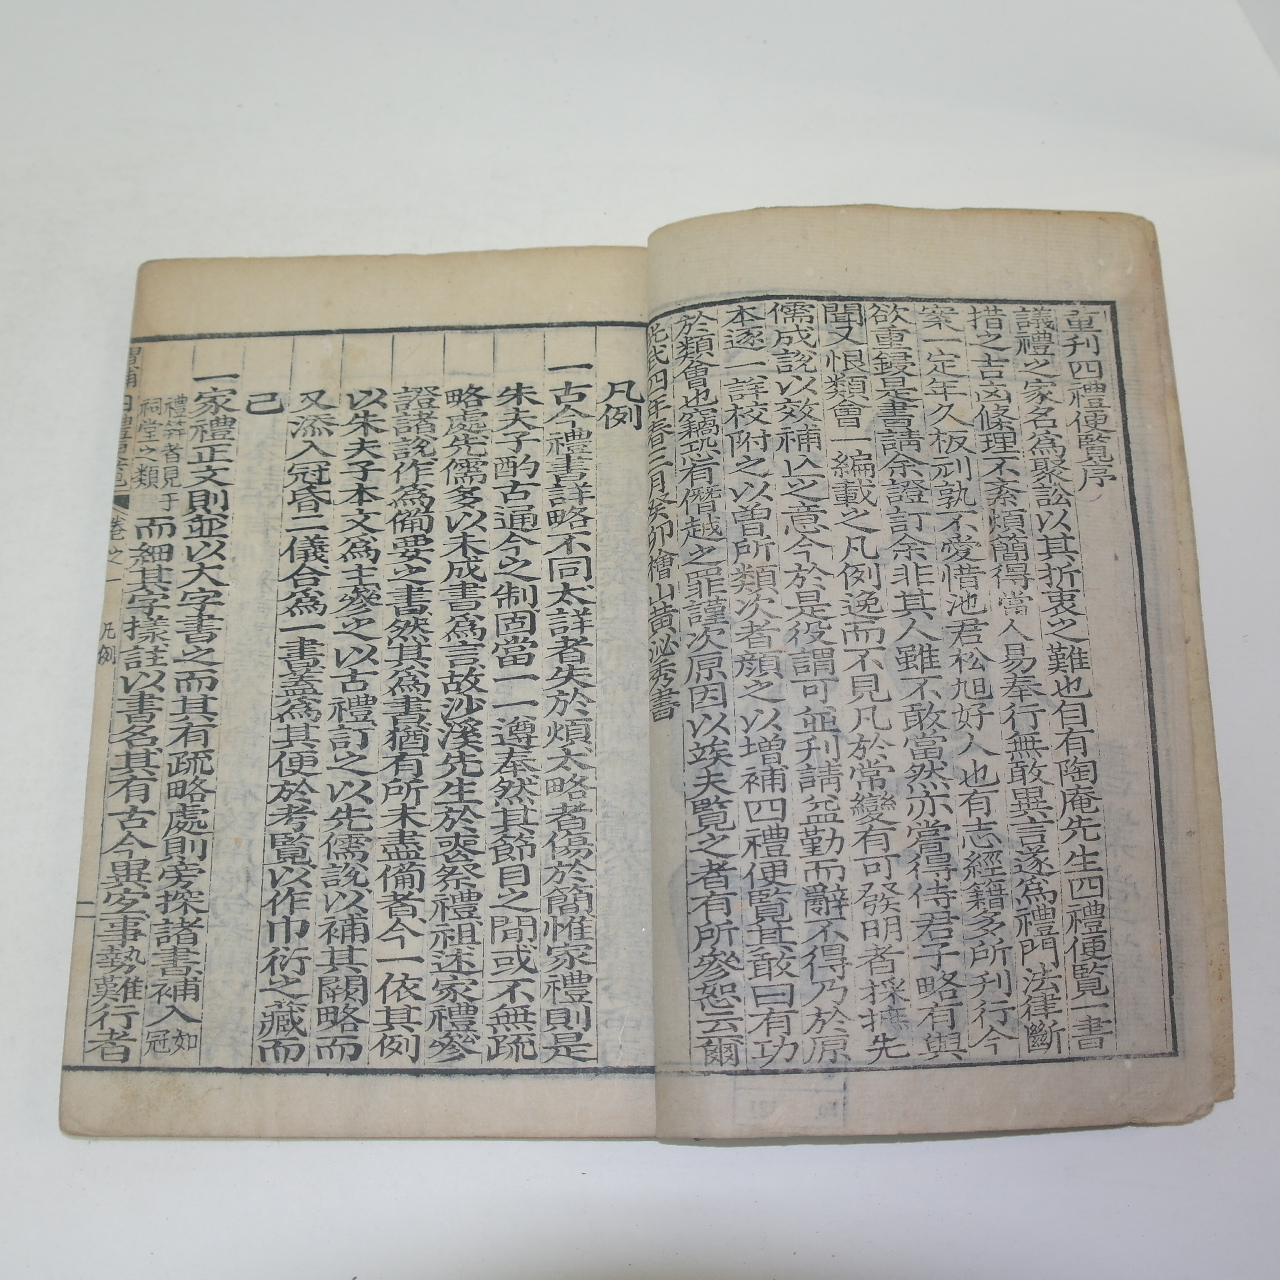 重刊四禮便覧序
議禮之家名爲聚訟以其折衷之難也自有陶庵先生四禮便覧一書
措之吉凶條理不紊煩簡得當人易奉行無敢異言遂爲禮門法律斷
案一定年久板刓孰不愛惜池君松旭好人也有志經籍多所刊行今
欲重鋟是書請余證訂余非其人雖不敢當然亦嘗得侍君子略有與
聞又恨類會一編載之凡例逸而不見凡於常變有可發明者採摭先
儒成說以效補亾之意今於是役謂可並刊請益勤而辭不得乃於原
本逐一詳校附之以曾所類次者顔之以增補四禮便覧其敢曰有功
於類會也竊恐有僭越之罪謹次原因以竢夫覧之者有所參恕云爾
光武四年春三月癸卯檜山黃泌秀書
凡例
一古今禮書詳略不同太詳者失於煩太略者傷於簡惟家禮則是
朱夫子酌古通今之制固當一一遵奉然其節目之間或不無疏
略處先儒多以未成書爲言故沙溪先生於喪祭禮祖述家禮參
證諸說作爲備要之書然其爲書猶有所未盡備者今一依其例
以朱夫子本文爲主參之以古禮訂之以先儒說以補其闕略而
又添入冠昏二儀合爲一書蓋爲其便於考覧以作巾衍之藏而
已
一家禮正文則並以大字書之而其有疏略處則旁探諸書補入如冠
禮笄者見于祠堂之類而細其字樣註以書名其有古今異宜事勢難行者
增補四禮便覧 卷之一 凡例 二